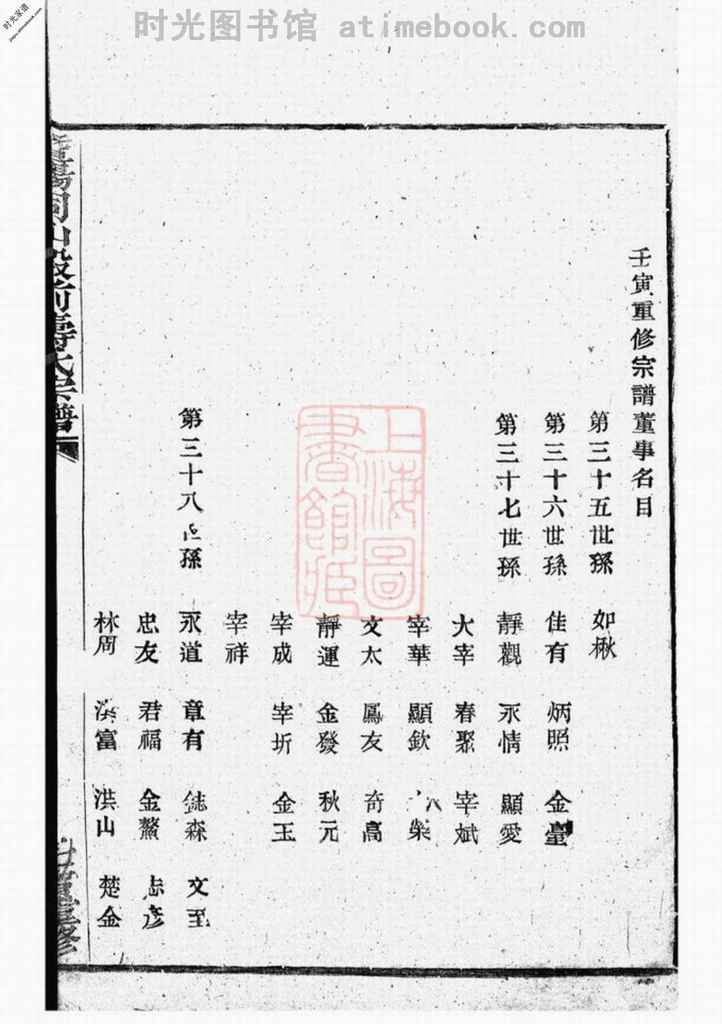 时光图书馆 atimebook.com
时光家谱
壬寅重修宗譜董事名目
第三十五世孫 如楸
第三十六世孫 佳有 炳照 金臺
第三十七世孫 靜觀 永情 顯愛
大宰 春聚 宰斌
宰華 顯欽 柴
文太 鳳友 奇高
靜運 金發 秋元
宰成 宰圻 金玉
宰祥
第三十八世孫 永道 章有 森 文玉
忠友 君福 金鰲 彥
林周 富 洪山 楚金
同山殿前壽氏宗譜
上海圖書館藏